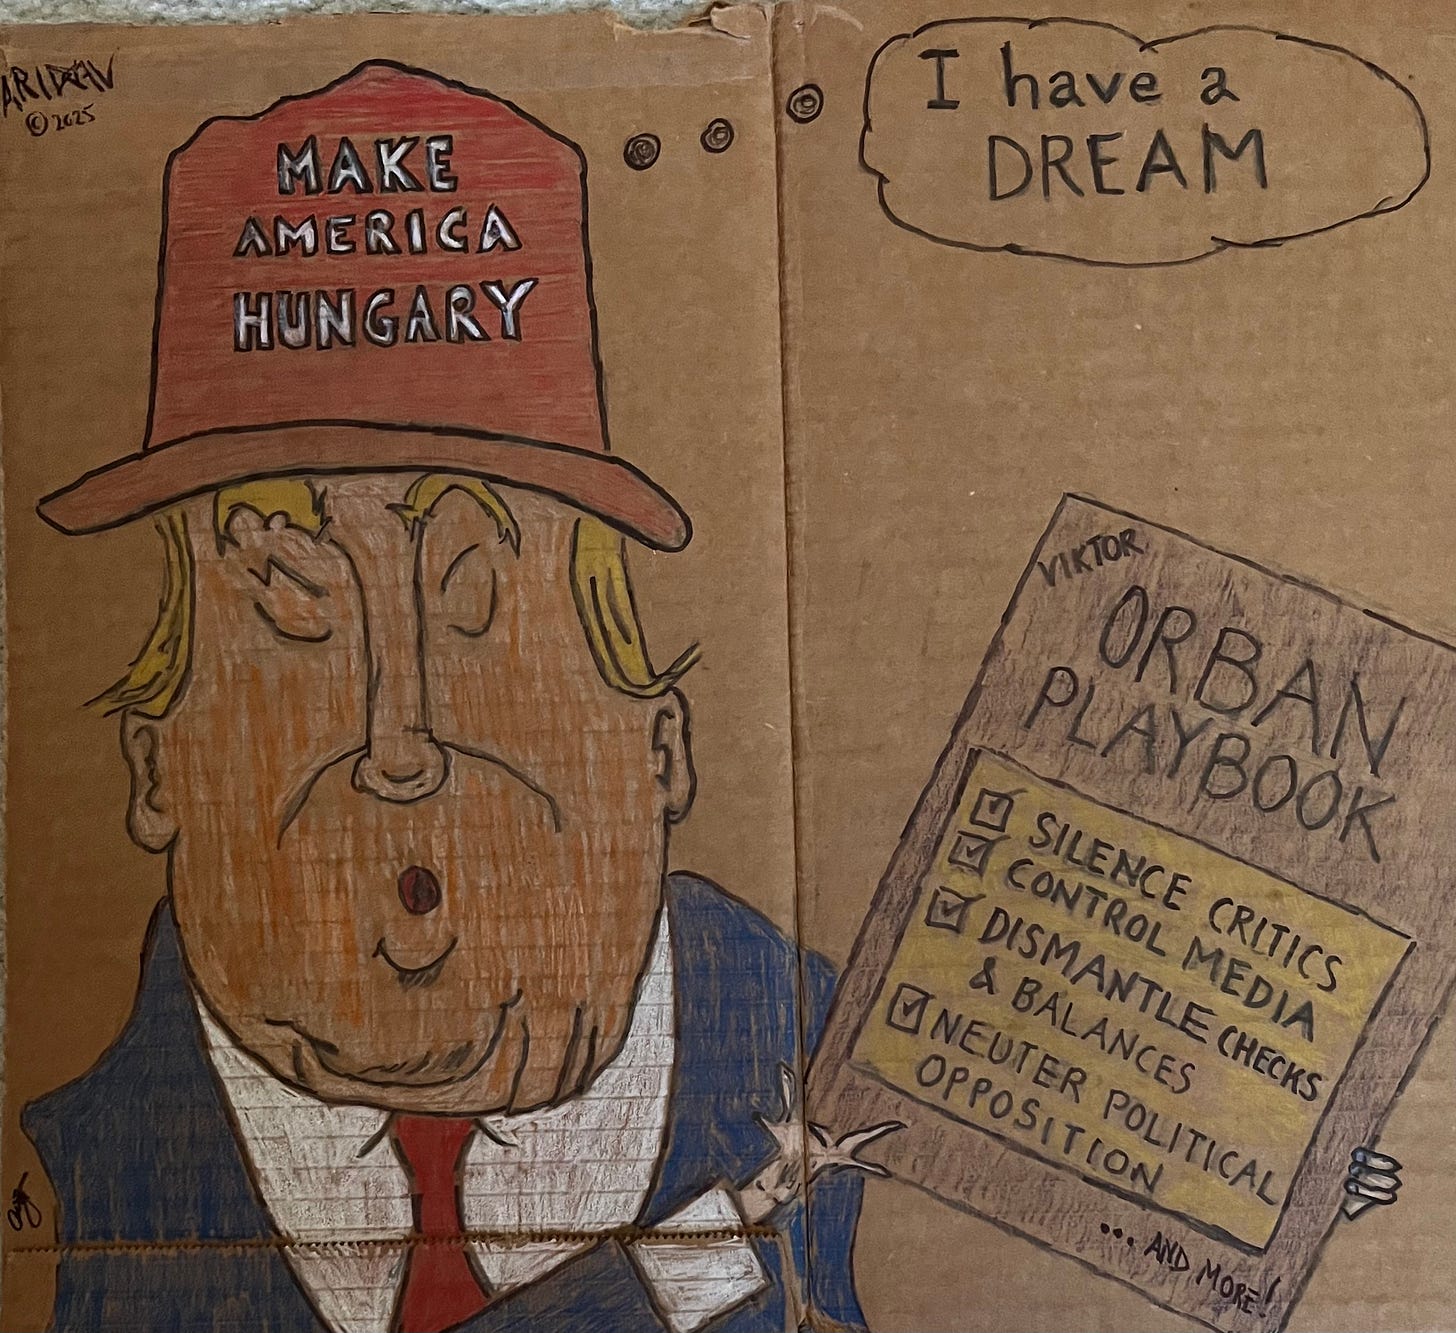 © 2025
MAKE
AMERICA
HUNGARY
I have a
DREAM
VIKTOR
ORBAN
PLAYBOOK
SILENCE CRITICS
CONTROL MEDIA
DISMANTLE CHECKS
& BALANCES
NEUTER POLITICAL
OPPOSITION
... AND MORE!